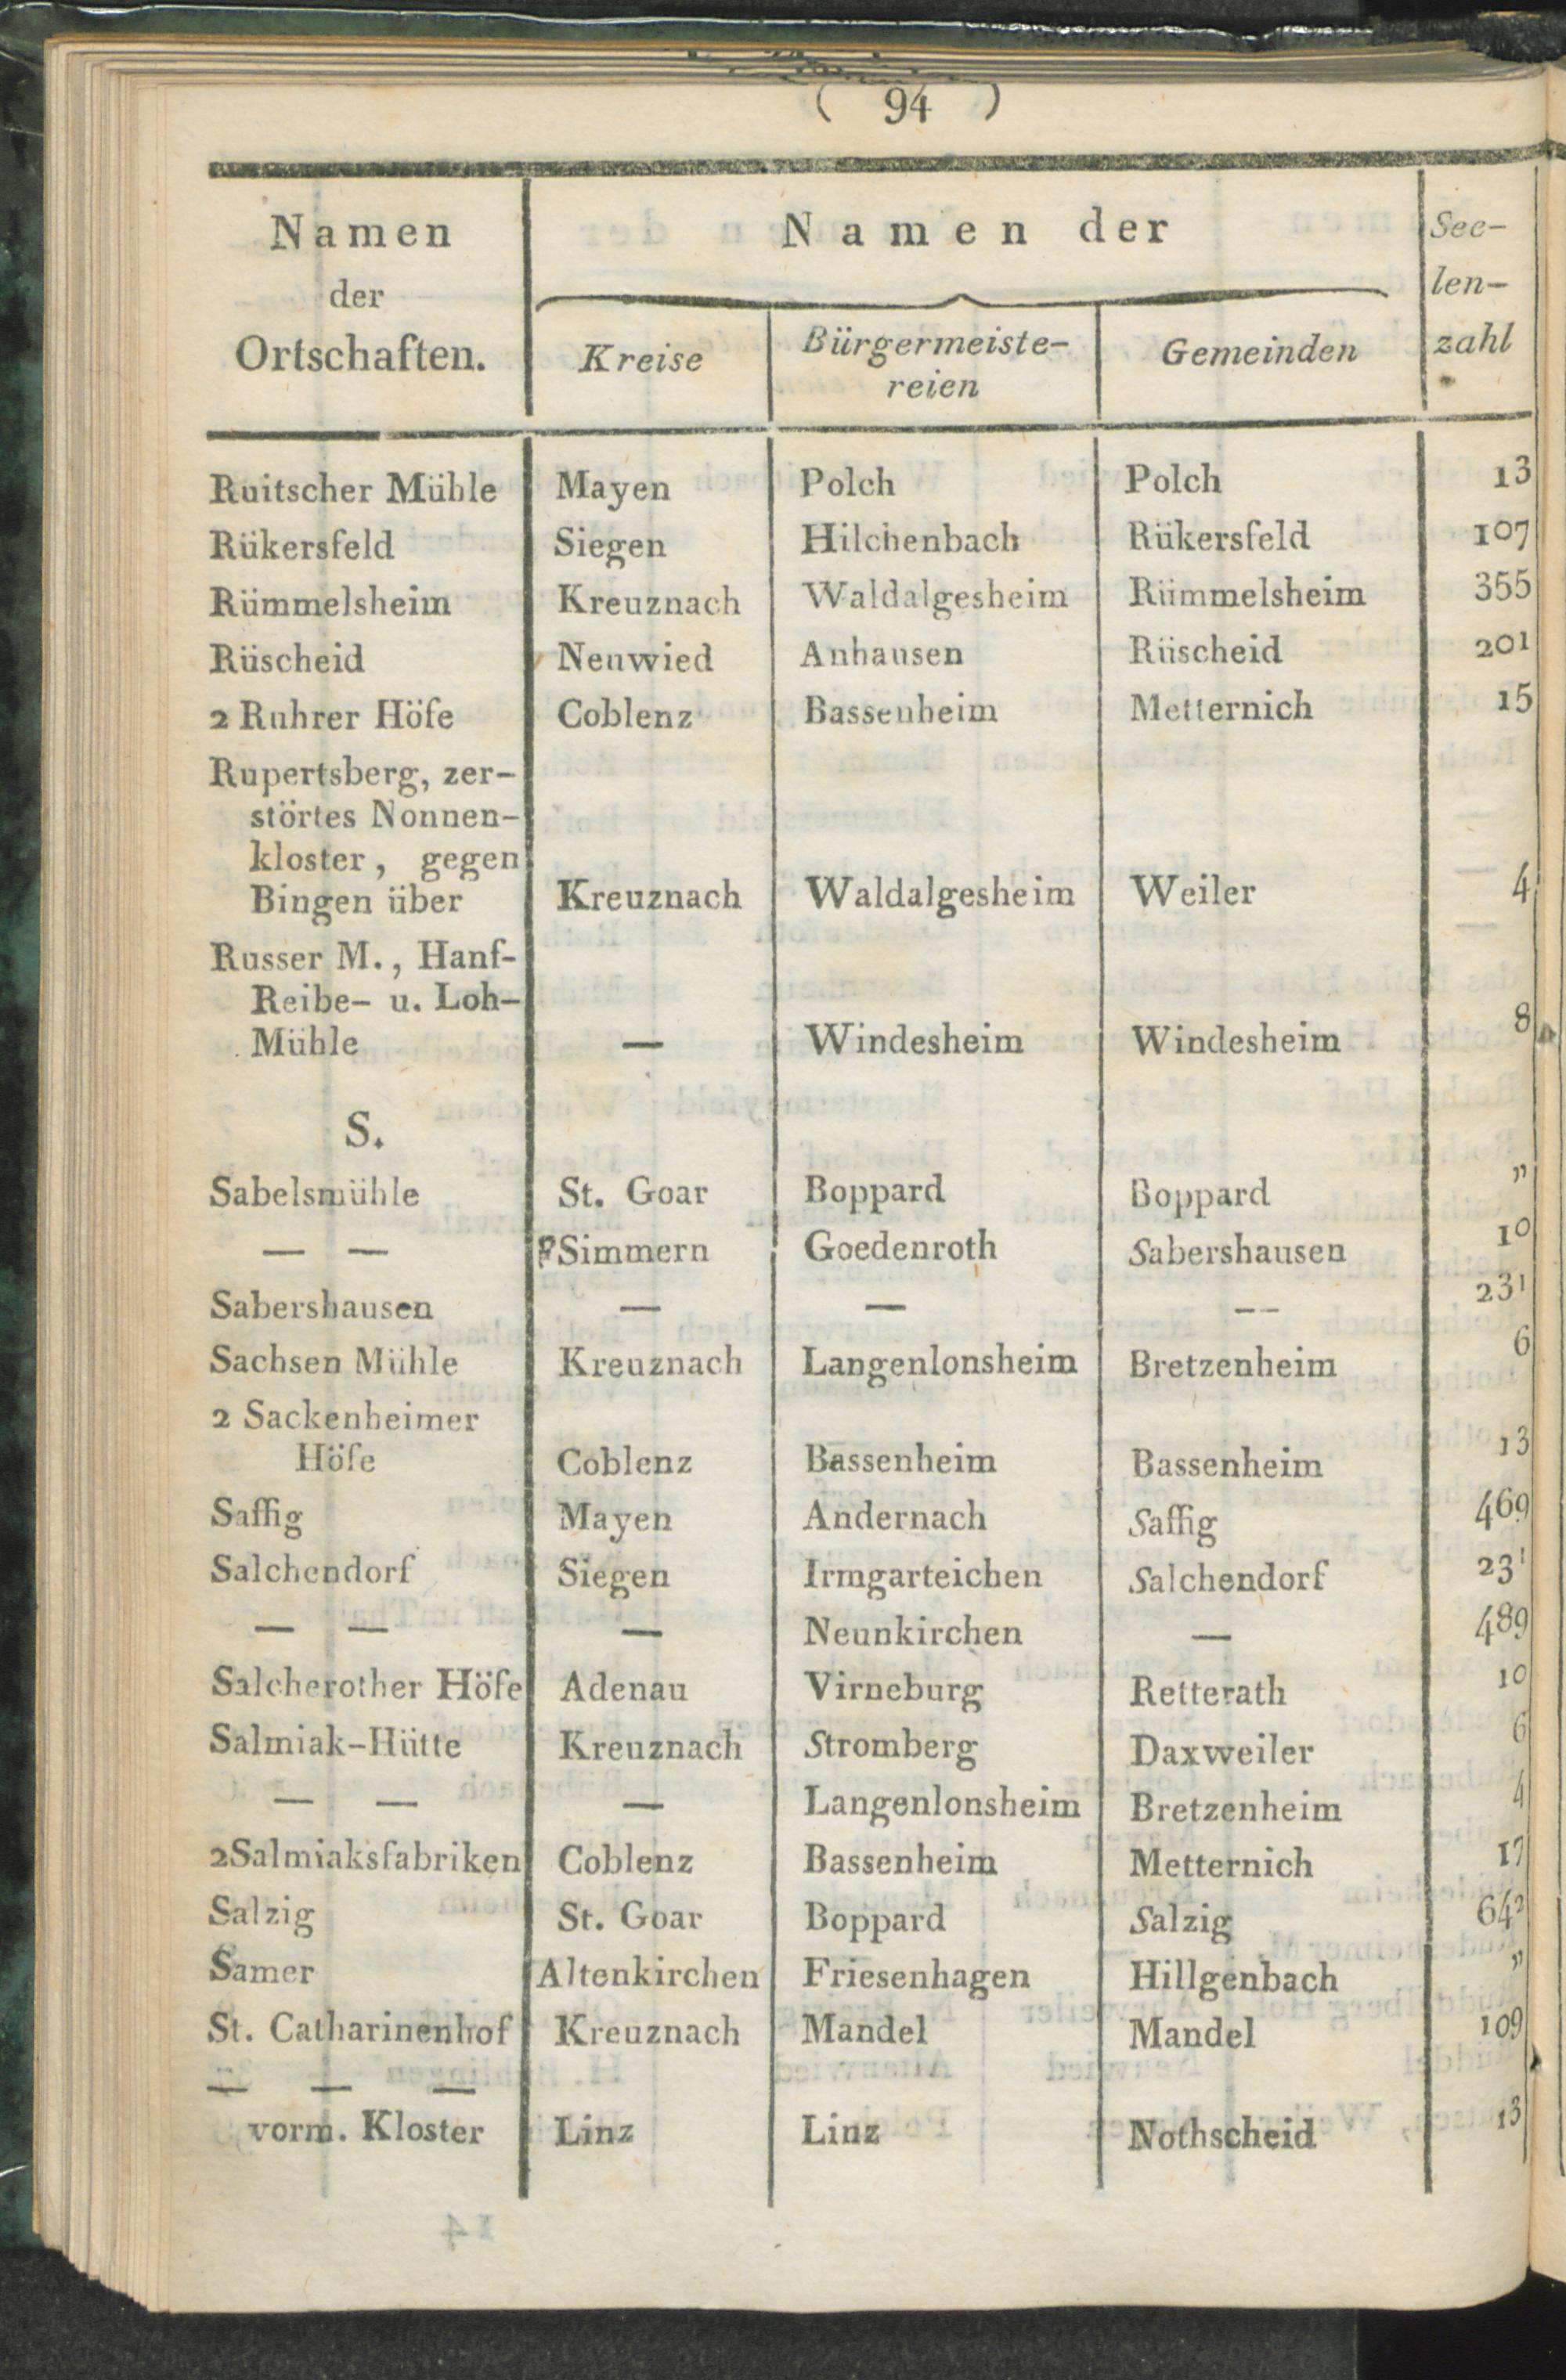 ( 94 )
Namen
der
Ortschaften.
Namen der
Kreise
Bürgermeiste-
reien
Gemeinden
See-
len-
zahl
Ruitscher Mühle Mayen Polch Polch 13
Rükersfeld Siegen Hilchenbach Rükersfeld 107
Rümmelsheim Kreuznach Waldalgesheim Rümmelsheim 355
Rüscheid Neuwied Anhausen Rüscheid 201
2 Ruhrer Höfe Coblenz Bassenheim Metternich 15
Rupertsberg, zer-
störtes Nonnen-
kloster, gegen
Bingen über Kreuznach Waldalgesheim Weiler 4
Russer M., Hanf-
Reibe- u. Loh-
Mühle — Windesheim Windesheim 8
S.
Sabelsmühle St. Goar Boppard Boppard „
— — Simmern Goedenroth Sabershausen 10
Sabershausen — — -- 231
Sachsen Mühle Kreuznach Langenlonsheim Bretzenheim 6
2 Sackenheimer
Höfe Coblenz Bassenheim Bassenheim 13
Saffig Mayen Andernach Saffig 469
Salchendorf Siegen Irmgarteichen Salchendorf 231
— — — Neunkirchen — 489
Salcherother Höfe Adenau Virneburg Retterath 10
Salmiak-Hütte Kreuznach Stromberg Daxweiler 6
— — — Langenlonsheim Bretzenheim 4
2Salmiaksfabriken Coblenz Bassenheim Metternich 17
Salzig St. Goar Boppard Salzig 642
Samer Altenkirchen Friesenhagen Hillgenbach „
St. Catharinenhof Kreuznach Mandel Mandel 109
— — —
vorm. Kloster Linz Linz Nothscheid 13